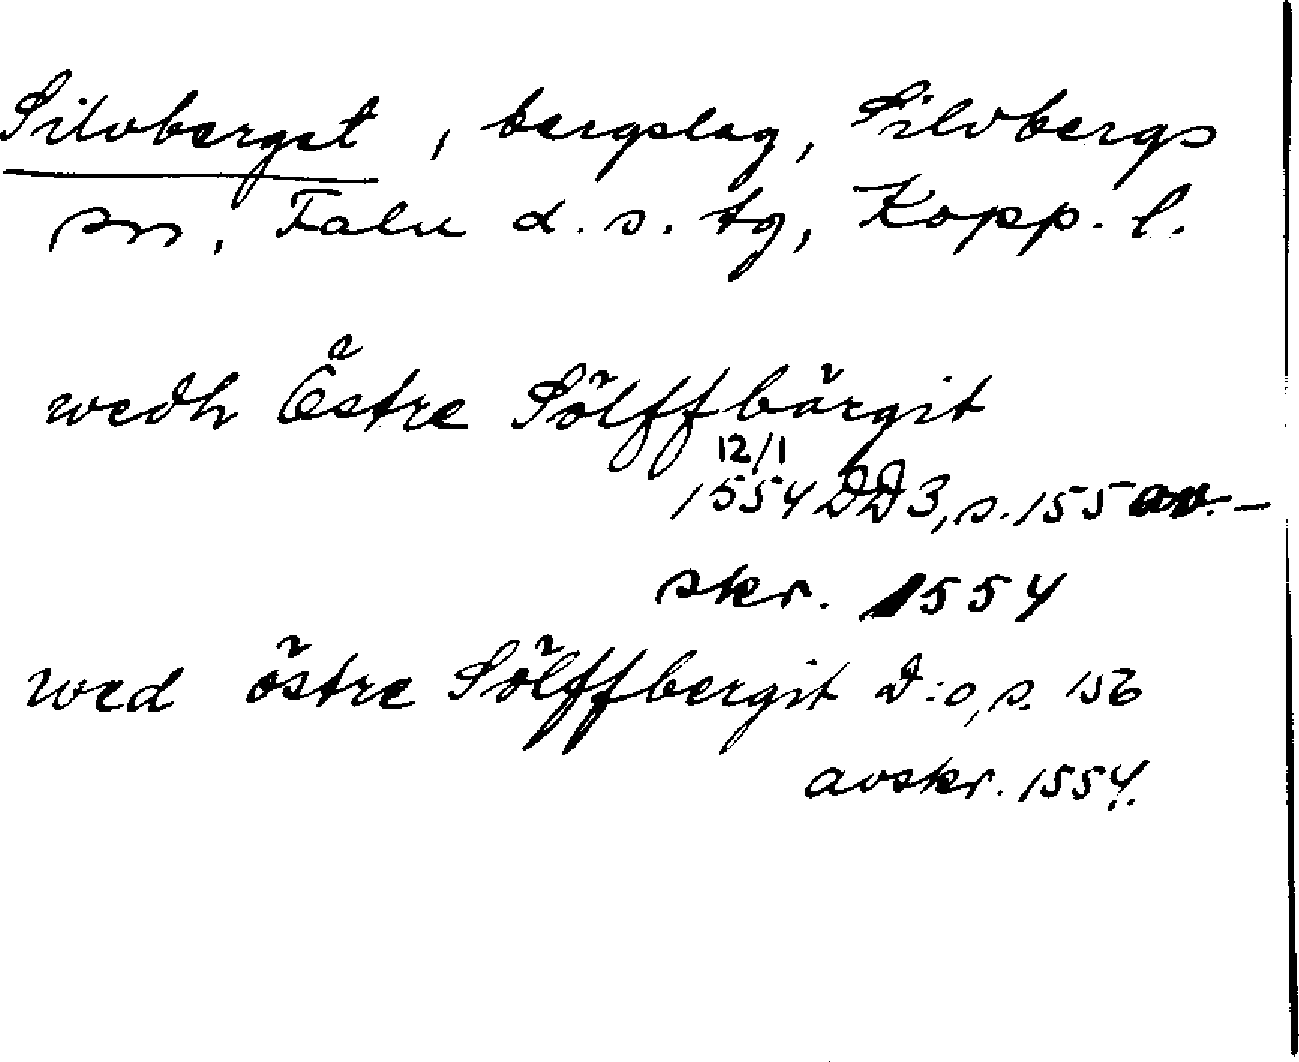 Silvberget, bergslag, Silvbergs
sn, Falu d. s. tg, Kopp. l.
wedh Östre Sölffbärgit
12/1
1554 DD 3, s. 155 av-
skr. 1554
wed östre Sölffbergit D:o, s. 156
avskr. 1554.